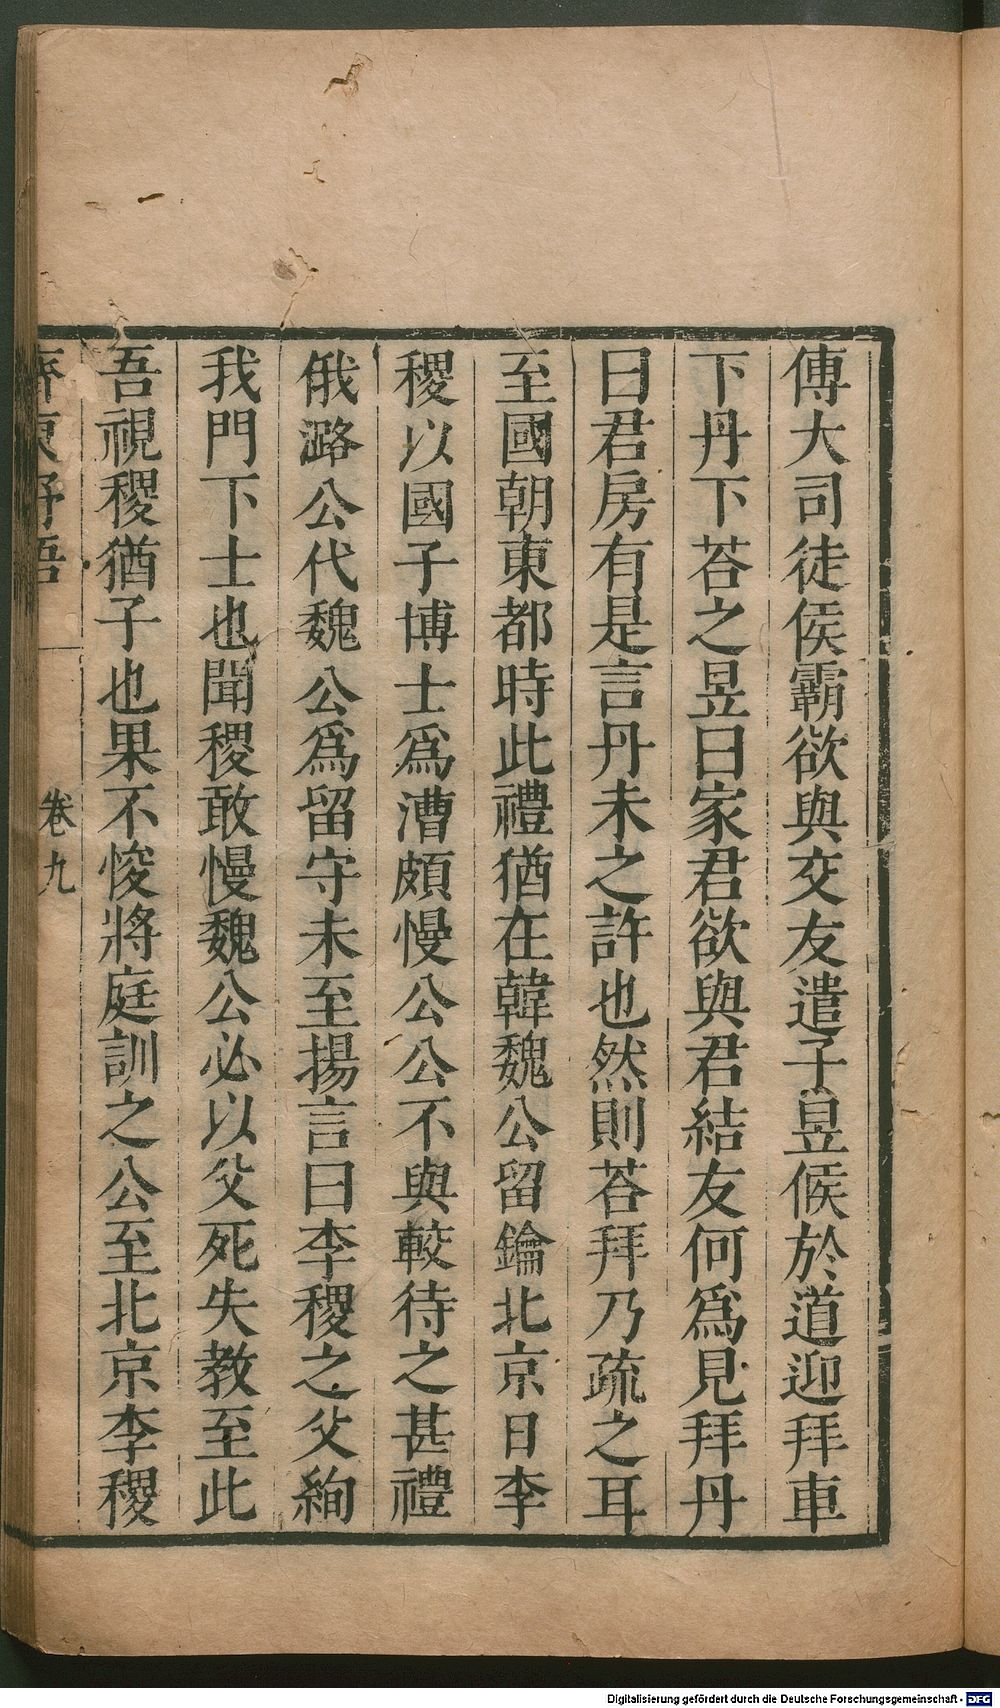 傳大司徒侯霸欲與交友遣子昱候於道迎拜車
下丹下荅之昱曰家君欲與君結友何爲見拜丹
曰君房有是言丹未之許也然則荅拜乃疏之耳
至國朝東都時此禮猶在韓魏公留鑰北京日李
稷以國子博士爲漕頗慢公公不與較待之甚禮
俄潞公代魏公爲留守未至揚言曰李稷之父絢
我門下士也聞稷敢慢魏公必以父死失教至此
吾視稷猶子也果不悛將庭訓之公至北京李稷
齊東野語
卷九
Digitalisierung gefördert durch die Deutsche Forschungsgemeinschaft - DFG